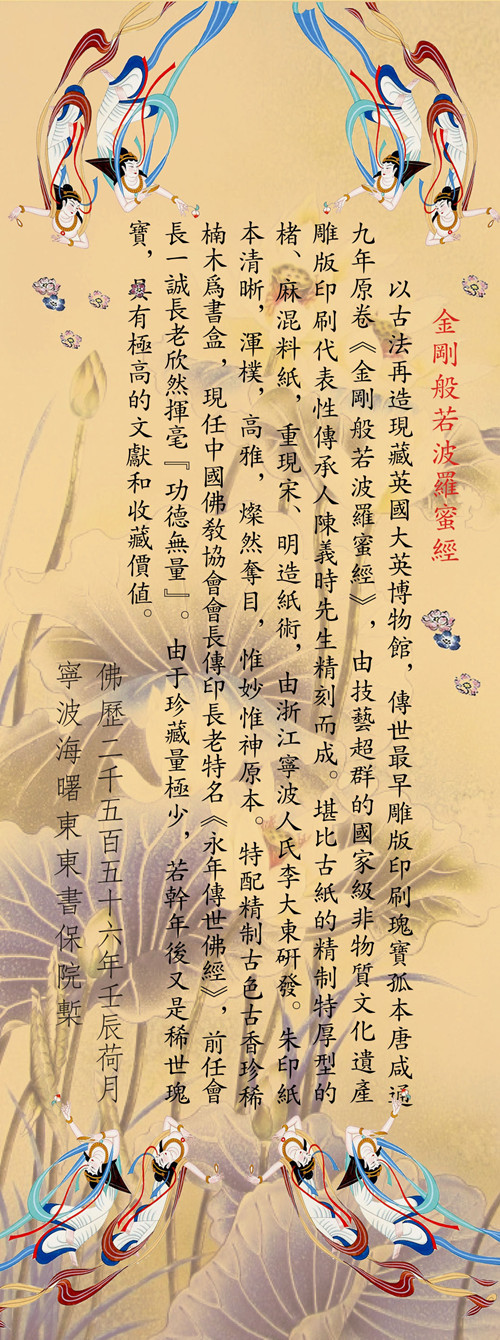 金剛般若波羅蜜經
以古法再造現藏英國大英博物館，傳世最早雕版印刷瑰寶孤本唐咸通
九年原卷《金剛般若波羅蜜經》，由技藝超群的國家級非物質文化遺產
雕版印刷代表性傳承人陳義時先生精刻而成。堪比古紙的精制特厚型的
楮、麻混料紙，重現宋、明造紙術，由浙江寧波人氏李大東研發。朱印紙
本清晰，渾樸，高雅，燦然奪目，惟妙惟神原本。特配精制古色古香珍稀
楠木爲書盒，現任中國佛教協會會長傳印長老特名《永年傳世佛經》，前任會
長一誠長老欣然揮毫『功德無量』。由于珍藏量極少，若幹年後又是稀世瑰
寶，具有極高的文獻和收藏價值。
佛歷二千五百五十六年壬辰荷月
寧波海曙東東書保院槧